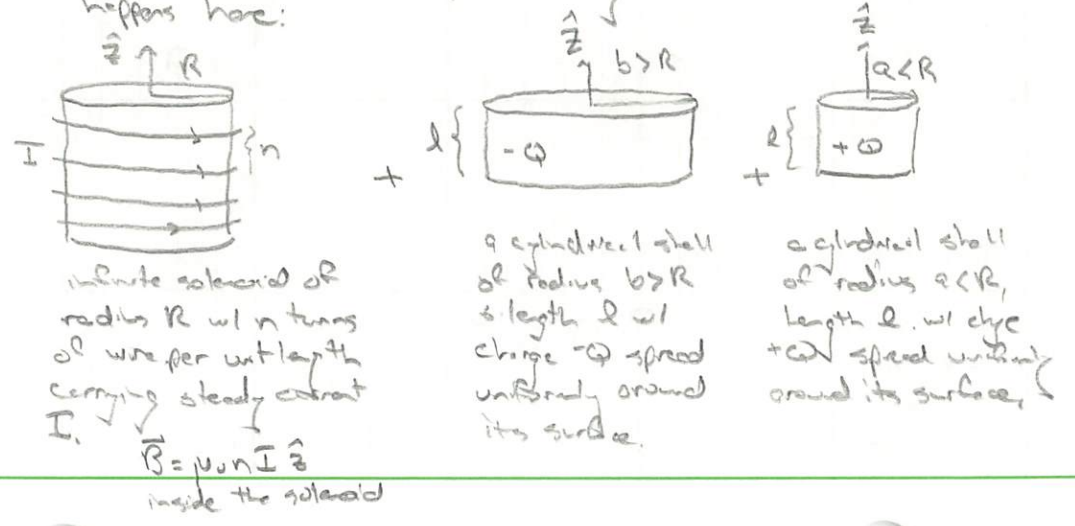 happens here:
ẑ R
I
n
+
ẑ b>R
l
-Q
+
ẑ a<R
l
+Q
infinite solenoid of
radius R w/ n turns
of wire per unit length
carrying steady current
I.
B⃗ = μ₀nI ẑ
inside the solenoid
a cylindrical shell
of radius b>R
& length l w/
charge -Q spread
uniformly around
its surface.
a cylindrical shell
of radius a<R,
length l w/ chge
+Q spread uniformly
around its surface,